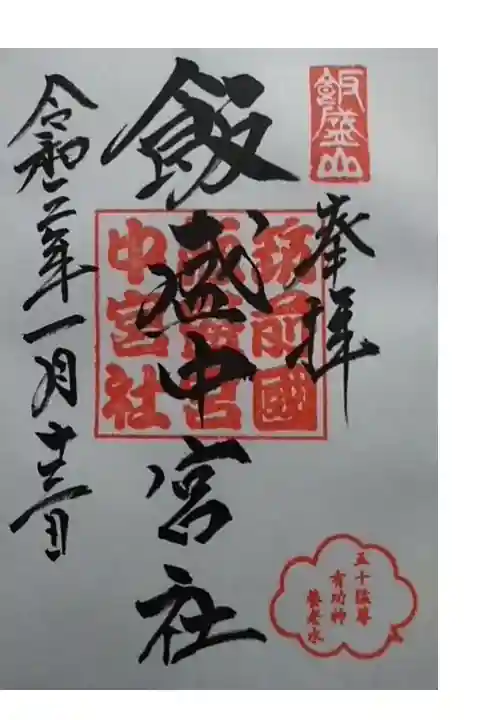 飯盛山
奉拝
飯盛中宮社
筑前國
飯盛宮
中宮社
令和二年一月十三日
五十猛尊
有功神
養老水